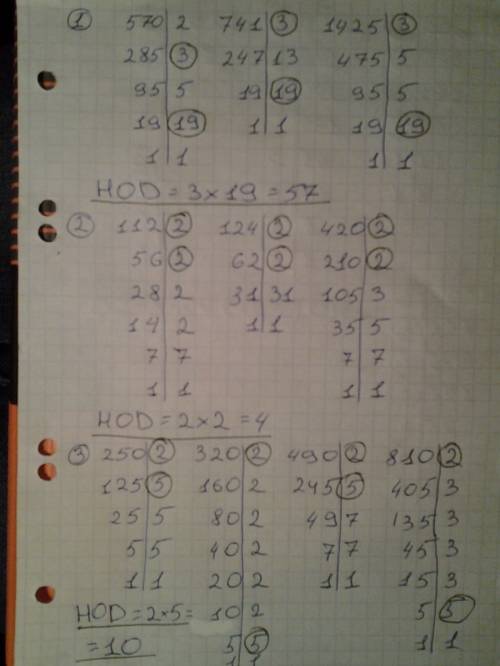 ① 570 | 2   741 | 3   1425 | 3
285 | 3   247 | 13   475 | 5
95 | 5   19 | 19   95 | 5
19 | 19   1 | 1   19 | 19
1 | 1   1 | 1
НОD = 3 × 19 = 57
② 112 | 2   124 | 2   420 | 2
56 | 2   62 | 2   210 | 2
28 | 2   31 | 31   105 | 3
14 | 2   1 | 1   35 | 5
7 | 7   7 | 7
1 | 1   1 | 1
НОD = 2 × 2 = 4
③ 250 | 2   320 | 2   490 | 2   810 | 2
125 | 5   160 | 2   245 | 5   405 | 3
25 | 5   80 | 2   49 | 7   135 | 3
5 | 5   40 | 2   7 | 7   45 | 3
1 | 1   20 | 2   1 | 1   15 | 3
НОD = 2 × 5 =   10 | 2   5 | 5
= 10   5 | 5   1 | 1
1 | 1